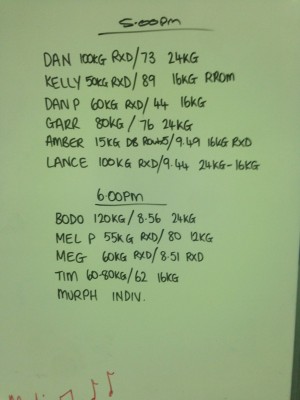 5.00pm
DAN 100KG RXD/73 24KG
KELLY 50KG RXD/89 16KG RROM
DAN P 60KG RXD/44 16KG
GARR 80KG/76 24KG
AMBER 15KG DB /9.49 16KG RXD
LANCE 100KG RXD/9.44 24KG-16KG
6.00pm
BODO 120KG/8.56 24KG
MEL P 55KG RXD/80 12KG
MEG 60KG RXD/8.51 RXD
TIM 60-80KG/62 16KG
MURPH INDIV.